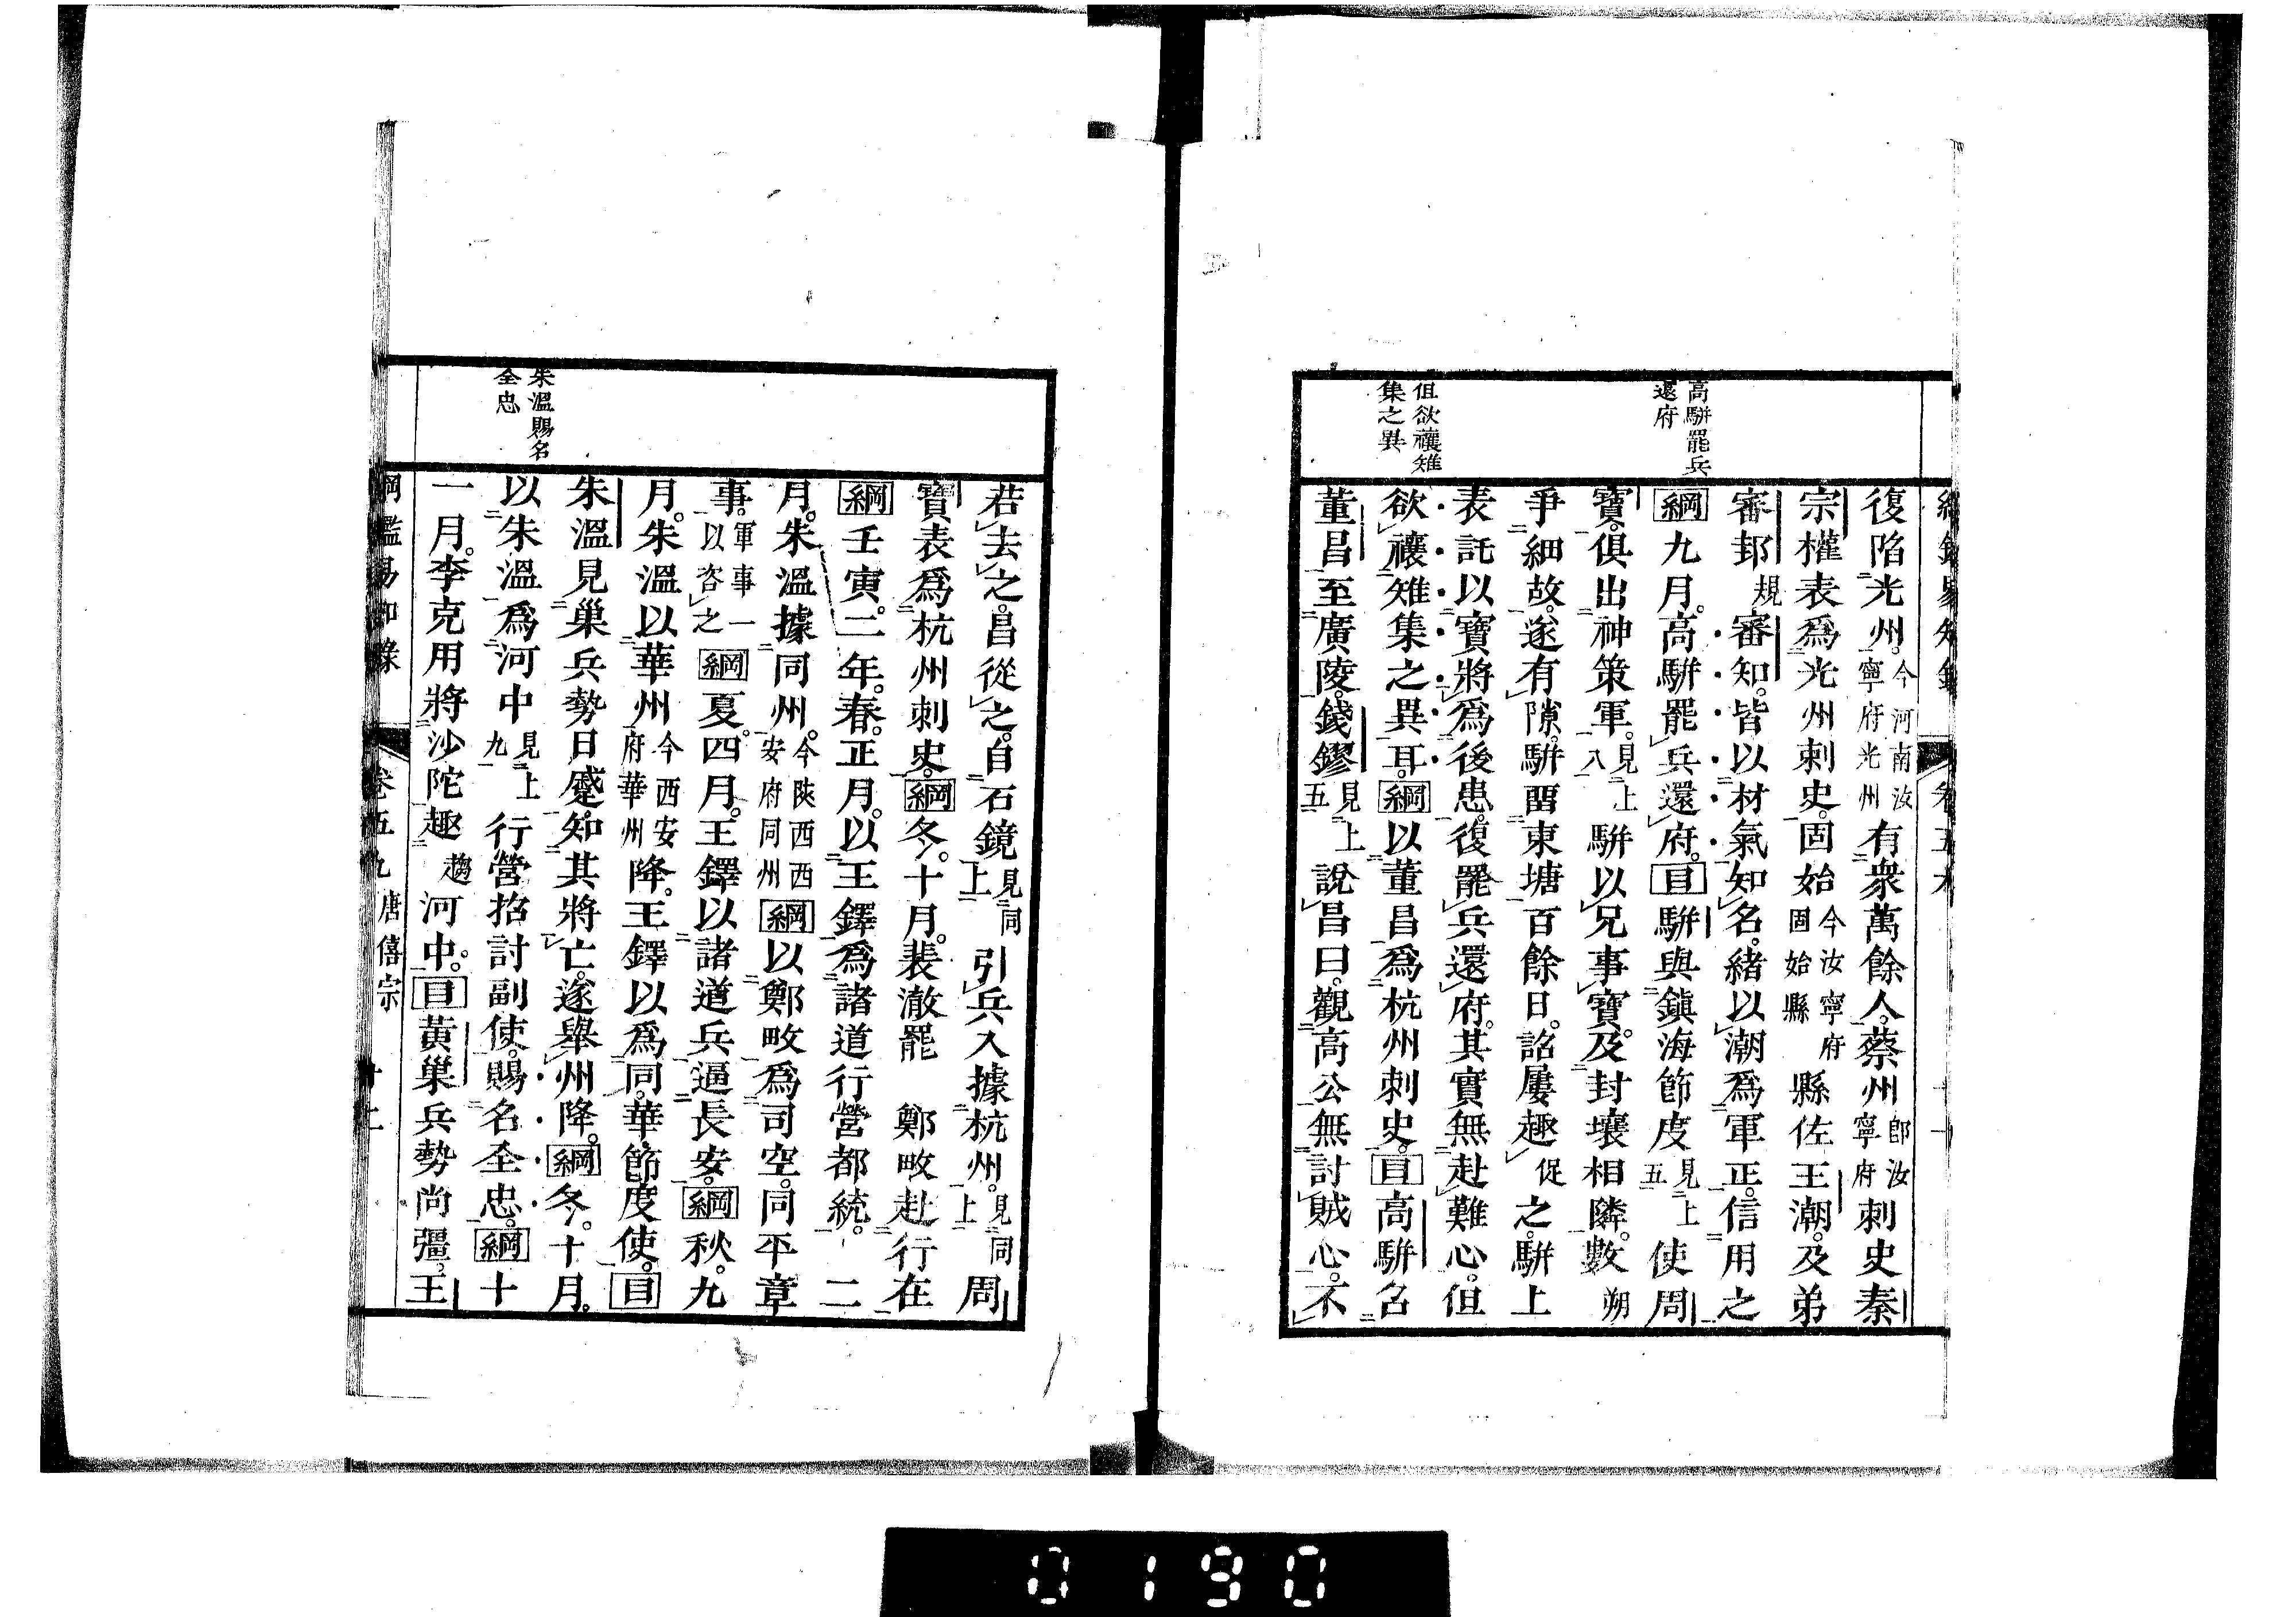 高駢罷兵
還府
但欲禳雉
集之異
復陷光州。今河南汝寧府光州有衆萬餘人。蔡州卽汝寧府刺史秦
宗權表爲光州刺史。固始今汝寧府固始縣縣佐王潮。及弟
審邽規審知。皆以材氣知名。緖以潮爲軍正。信用之
綱九月。高駢罷兵還府。目駢與鎭海節度見上五使周
寶。俱出神策軍。見上八駢以兄事寶。及封壤相隣。數朔
爭細故。遂有隙。駢留東塘百餘日。詔屢趣促之。駢上
表託以寶將爲後患。復罷兵還府。其實無赴難心。但
欲禳雉集之異耳。綱以董昌爲杭州刺史。目高駢召
董昌至廣陵。錢鏐見上五說昌曰。觀高公無討賊心。不
若去之。昌從之。自石鏡見同上引兵入據杭州。見同上周
寶表爲杭州刺史。綱冬。十月。裴澈罷　鄭畋赴行在
綱壬寅。二年。春。正月。以王鐸爲諸道行營都統。　二
月。朱溫據同州。今陝西西安府同州綱以鄭畋爲司空。同平章
事。軍事一以咨之綱夏。四月。王鐸以諸道兵逼長安。綱秋。九
月。朱溫以華州今西安府華州降。王鐸以爲同。華節度使。目
朱溫見巢兵勢日蹙。知其將亡。遂舉州降。綱冬。十月。
以朱溫爲河中見上九行營招討副使。賜名全忠。綱十
一月。李克用將沙陀趣趨河中。目黃巢兵勢尚彊。王
朱溫賜名
全忠
綱鑑易知錄　卷五九　唐僖宗　十二